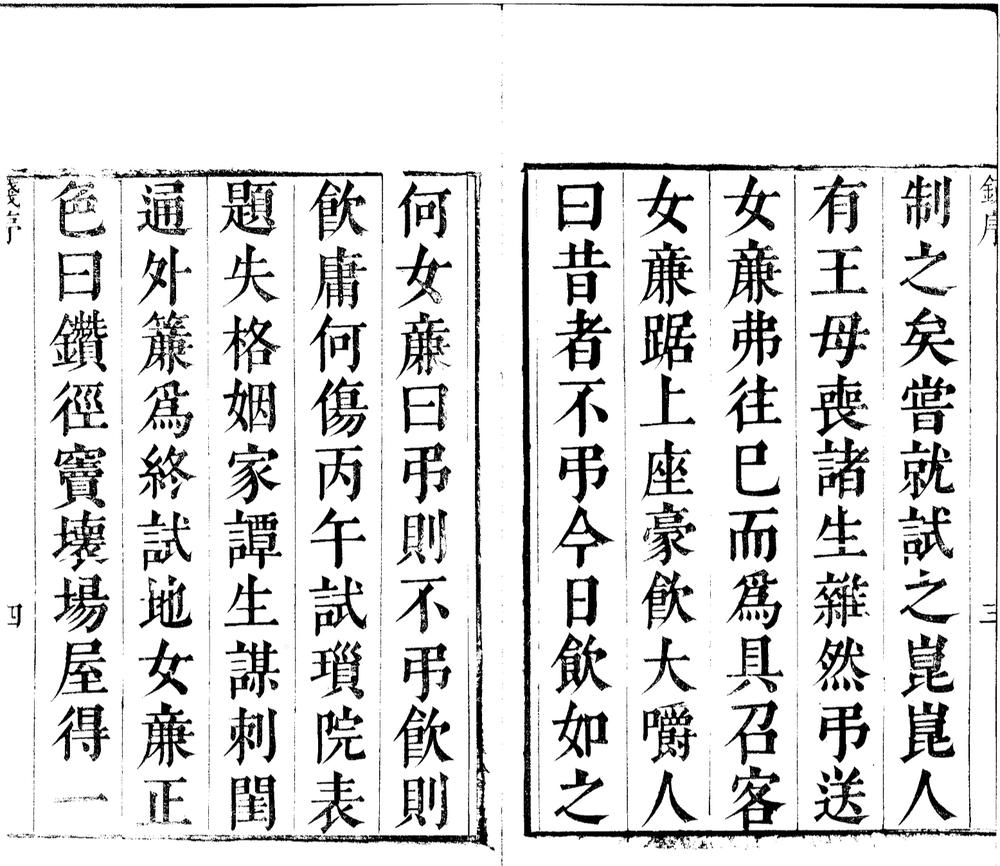 制之矣嘗就試之崑崑人
有王母喪諸生雜然弔送
女亷弗往巳而爲具召客
女亷踞上座豪飲大嚼人
曰昔者不弔今日飲如之
三
何女亷曰弔則不弔飲則
飲庸何傷丙午試瑣院表
題失格姻家譚生謀刺閨
通外簾爲終試地女亷正
色曰鑽徑竇壞場屋得一
四